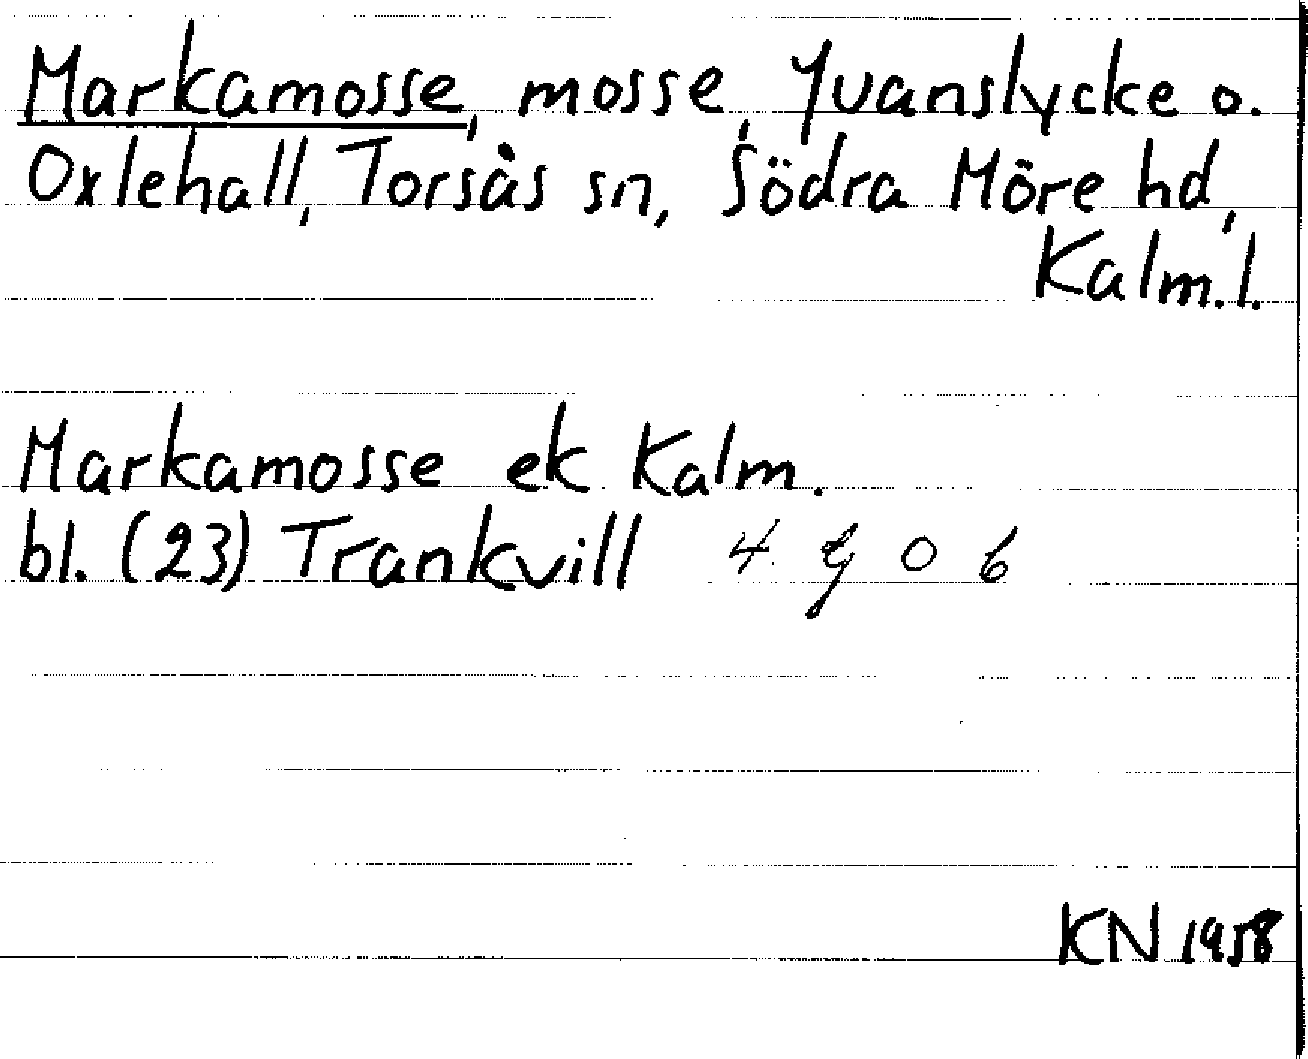 Markamosse, mosse, Yvanslycke o.
Oxlehall, Torsås sn, Södra Möre hd,
Kalm. l.
Markamosse ek Kalm.
bl. (23) Trankvill 4 g 0 6
KN 1958